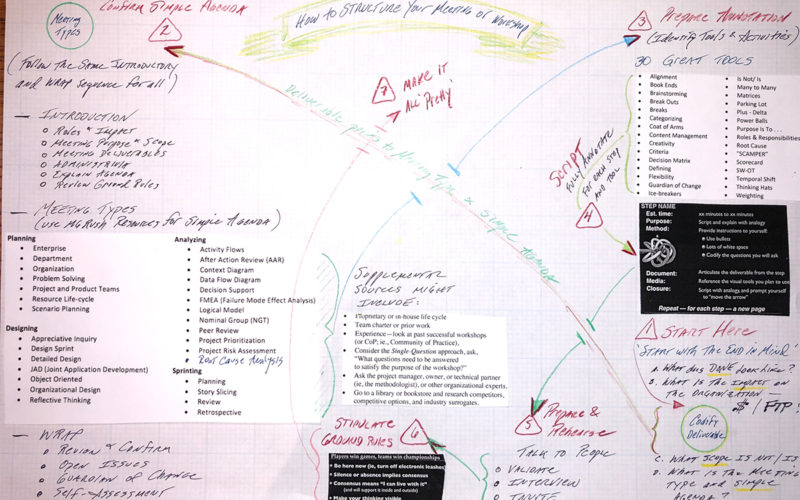 Meeting Types
CONFIRM SIMPLE AGENDA
2
How to STRUCTURE Your MEETING OR Workshop
3
PREPARE ANNOTATION
(IDENTIFY TOOLS & ACTIVITIES)
(FOLLOW THE SAME INTRODUCTORY
AND WRAP SEQUENCE FOR ALL)
7
MAKE IT
ALL Pretty!
Deliverable points to Meeting Type & Simple Agenda
30 GREAT TOOLS
• Alignment
• Book Ends
• Brainstorming
• Break Outs
• Breaks
• Categorizing
• Coat of Arms
• Content Management
• Creativity
• Criteria
• Decision Matrix
• Defining
• Flexibility
• Guardian of Change
• Ice-breakers
• Is Not/ Is
• Many to Many
• Matrices
• Parking Lot
• Plus - Delta
• Power Balls
• Purpose Is To . . .
• Roles & Responsibilities
• Root Cause
• "SCAMPER"
• Scorecard
• SW-OT
• Temporal Shift
• Thinking Hats
• Weighting
— INTRODUCTION
o Roles & Impact
o Meeting Purpose & Scope
o Meeting Deliverables
o ADMINISTRIVIA
o Explain AGENDA
o Review Ground Rules
SCRIPT
FULLY ANNOTATE
FOR EACH STEP
AND TOOL
4
— MEETING TYPES
(USE MGRUSH RESOURCES FOR SIMPLE AGENDA)
Planning
• Enterprise
• Department
• Organization
• Problem Solving
• Project and Product Teams
• Resource Life-cycle
• Scenario Planning
Designing
• Appreciative Inquiry
• Design Sprint
• Detailed Design
• JAD (Joint Application Development)
• Object Oriented
• Organizational Design
• Reflective Thinking
Analyzing
• Activity Flows
• After Action Review (AAR)
• Context Diagram
• Data Flow Diagram
• Decision Support
• FMEA (Failure Mode Effect Analysis)
• Logical Model
• Nominal Group (NGT)
• Peer Review
• Project Prioritization
• Project Risk Assessment
• Root Cause Analysis
Sprinting
• Planning
• Story Slicing
• Review
• Retrospective
STEP NAME
Est. time: xx minutes to xx minutes
Purpose: Script and explain with analogy
Method: Provide instructions to yourself:
• Use bullets
• Lots of white space
• Codify the questions you will ask
Document: Articulate the deliverable from the step
Media: Reference the visual tools you plan to use
Closure: Script with analogy and prompt yourself
to "move the arrow"
Repeat — for each step — a new page
Supplemental
Sources Might
Include:
• Proprietary or in-house life cycle
• Team charter or prior work
• Experience—look at past successful workshops
(or CoP; ie., Community of Practice).
• Consider the Single Question approach, ask,
"What questions need to be answered
to satisfy the purpose of the workshop?"
• Ask the project manager, owner, or technical partner
(ie, the methodologist), or other organizational experts.
• Go to a library or bookstore and research competitors,
competitive options, and industry surrogates.
1
START Here
"START WITH THE END IN MIND"
A. What does DONE Look Like?
B. WHAT IS THE IMPACT ON
THE ORGANIZATION —
$ / FTP!
Codify
Deliverable
C. WHAT SCOPE IS NOT / IS
D. WHAT IS THE MEETING
TYPE AND SIMPLE
AGENDA?
— WRAP
o REVIEW & CONFIRM
o OPEN ISSUES
o GUARDIAN OF CHANGE
o SELF-ASSESSMENT
STIMULATE
GROUND RULES
6
Players win games, teams win championships
• Be here now (ie, turn off electronic leashes)
• Silence or absence implies consensus
• Consensus means "I can live with it"
(and will support it inside and outside)
• Make your thinking visible
5
Prepare &
Rehearse
TALK TO PEOPLE
o VALIDATE
o INTERVIEW
o INVITE